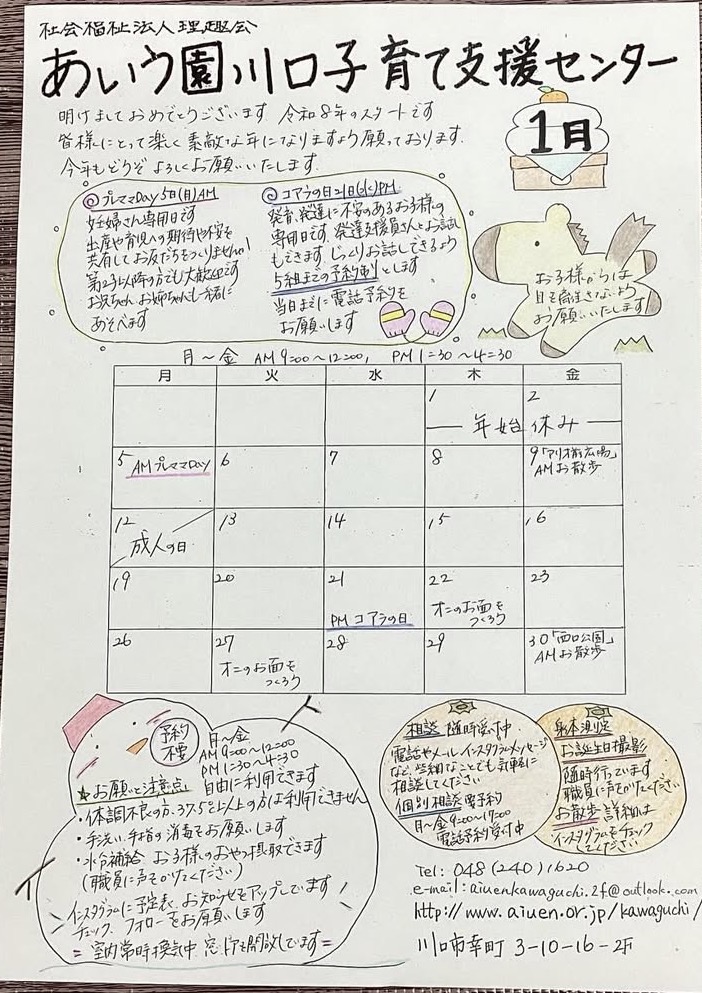 社会福祉法人理趣会
あいう園川口子育て支援センター
明けましておめでとうございます 令和8年のスタートです
皆様にとって楽しく素敵な年になりますよう願っております。
今年もどうぞよろしくお願いいたします。
1月
◎プレママDay 5日(月)AM
妊婦さん専用日です
出産や育児への期待や不安を
共有してお友だちをつくりませんか
第2子以降の方でも大歓迎です
お兄ちゃん、お姉ちゃんも一緒に
あそべます
◎コアラの日21日(水)PM
発育、発達に不安のあるお子様の
専用日です。発達支援員さんとお話
もできます。じっくりお話しできるよう
5組までの予約制とします
当日までに電話予約を
お願いします
お子様からは
目を離さないよう
お願いいたします
月〜金 AM9:00〜12:00, PM1:30〜4:30
月 火 水 木 金
1 2
年始休み
5 AMプレママDay 6 7 8 9「アリオ樹広場」
AMお散歩
12 13 14 15 16
成人の日
19 20 21 22 23
PMコアラの日 オニのお面を
つくろう
26 27 28 29 30「西口公園」
AMお散歩
オニのお面を
つくろう
予約
不要
月〜金
AM9:00〜12:00
PM1:30〜4:30
自由に利用できます
★お願いと注意点
・体調不良の方、37.5℃以上の方は利用できません
・手洗い、手指の消毒をお願いします
・水分補給 お子様のおやつ摂取できます
(職員に声をかけてください)
インスタグラムに予定表、お知らせをアップしています
チェック、フォローをお願いします
=室内常時換気中 窓、ドアを開放しています=
相談 随時受付中
電話やメール、インスタグラムメッセージ
など、些細なことでも気軽に
相談してください
個別相談 要予約
月〜金9:00〜17:00
電話予約受付中
身体測定
お誕生日撮影
随時行っています
職員に声をかけてください
お散歩 詳細は
インスタグラムをチェック
してください
Tel: 048(240)1620
e-mail:aiuenkawaguchi.2f@outlook.com
http://www.aiuen.or.jp/kawaguchi/
川口市幸町 3-10-16-2F